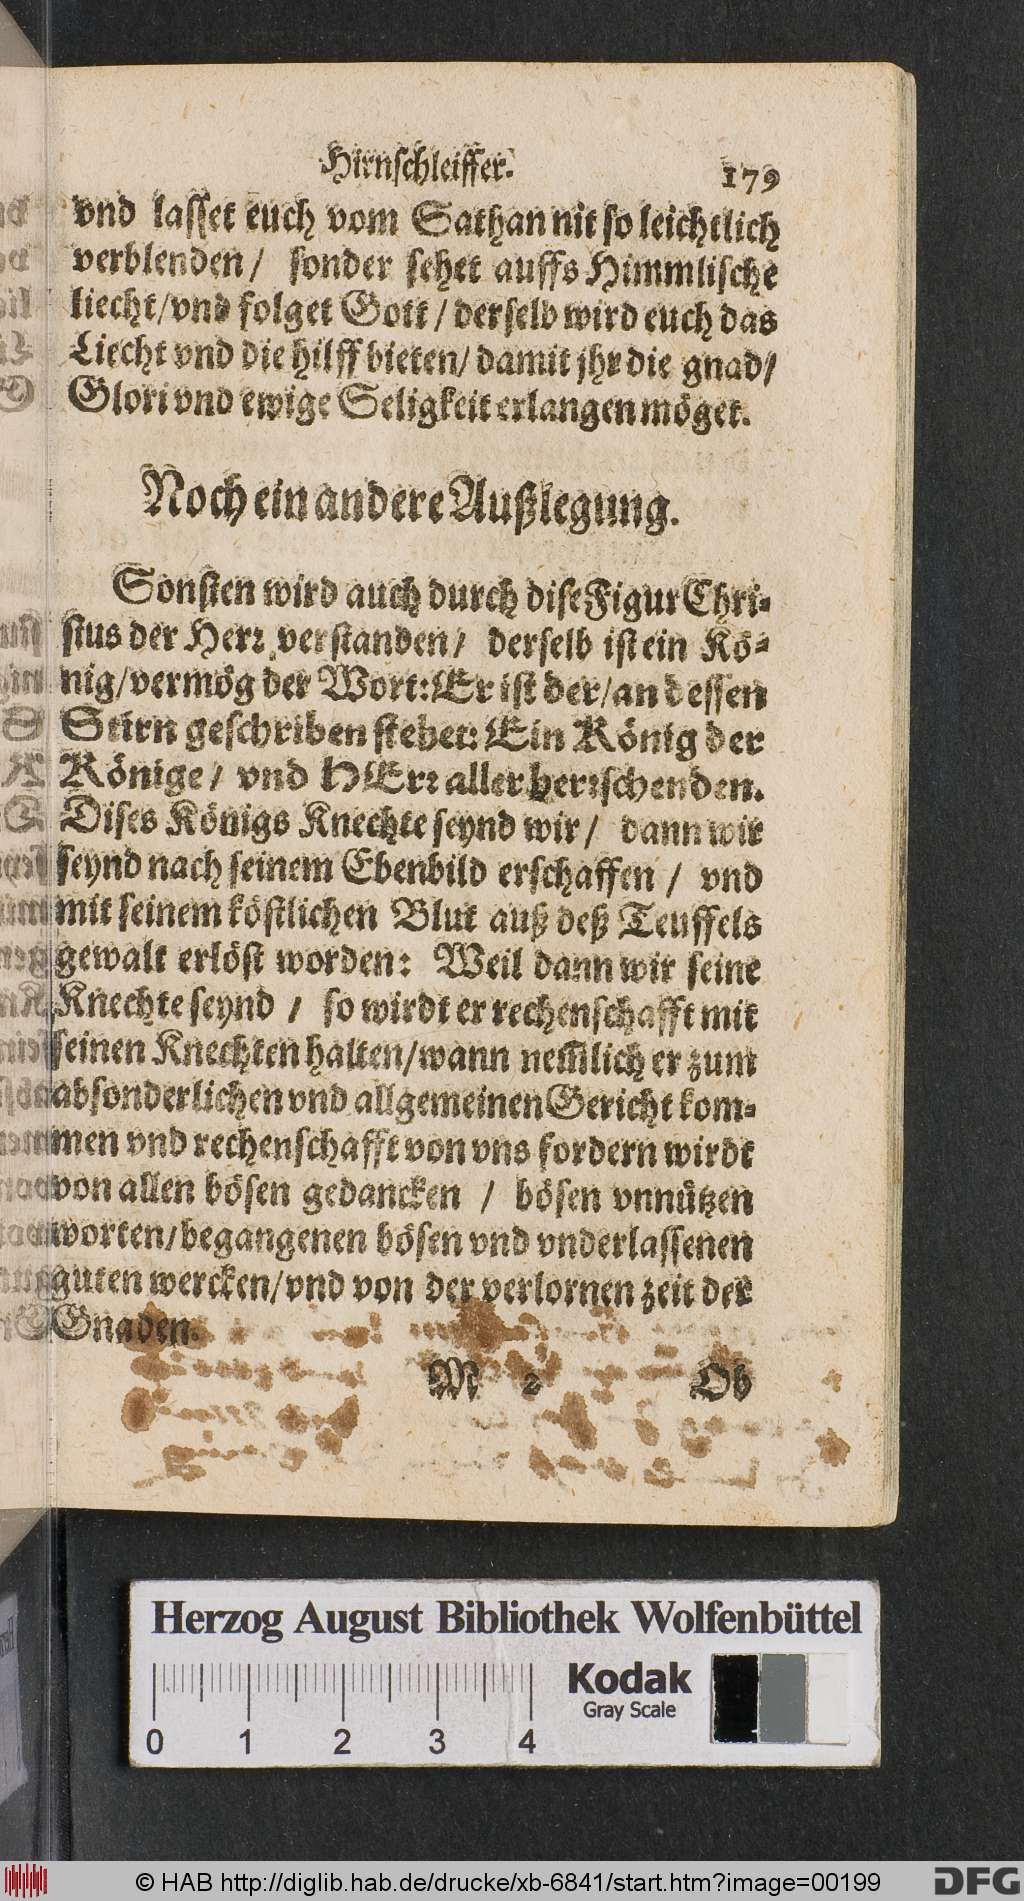 Hirnschleiffer. 179
vnd lasset euch vom Sathan nit so leichtlich
verblenden / sonder sehet auffs Himmlische
liecht/vnd folget Gott / derselb wird euch das
Liecht vnd die hilff bieten/ damit jhr die gnad/
Glori vnd ewige Seligkeit erlangen möget.
Noch ein andere Außlegung.
Sonsten wird auch durch dise Figur Chri-
stus der Herr verstanden / derselb ist ein Kö-
nig/vermög der Wort: Er ist der/an dessen
Stirn geschriben stehet: Ein König der
Könige / vnd HErr aller herrschenden.
Dises Königs Knechte seynd wir / dann wir
seynd nach seinem Ebenbild erschaffen / vnd
mit seinem köstlichen Blut auß deß Teuffels
gewalt erlöst worden: Weil dann wir seine
Knechte seynd / so wirdt er rechenschafft mit
seinen Knechten halten/wann nem̃lich er zum
absonderlichen vnd allgemeinen Gericht kom-
men vnd rechenschafft von vns fordern wirdt
von allen bösen gedancken / bösen vnnützen
worten/begangenen bösen vnd vnderlassenen
guten wercken/vnd von der verlornen zeit der
Gnaden.
M 2 Ob
Herzog August Bibliothek Wolfenbüttel
Kodak
Gray Scale
0 1 2 3 4
© HAB http://diglib.hab.de/drucke/xb-6841/start.htm?image=00199
DFG